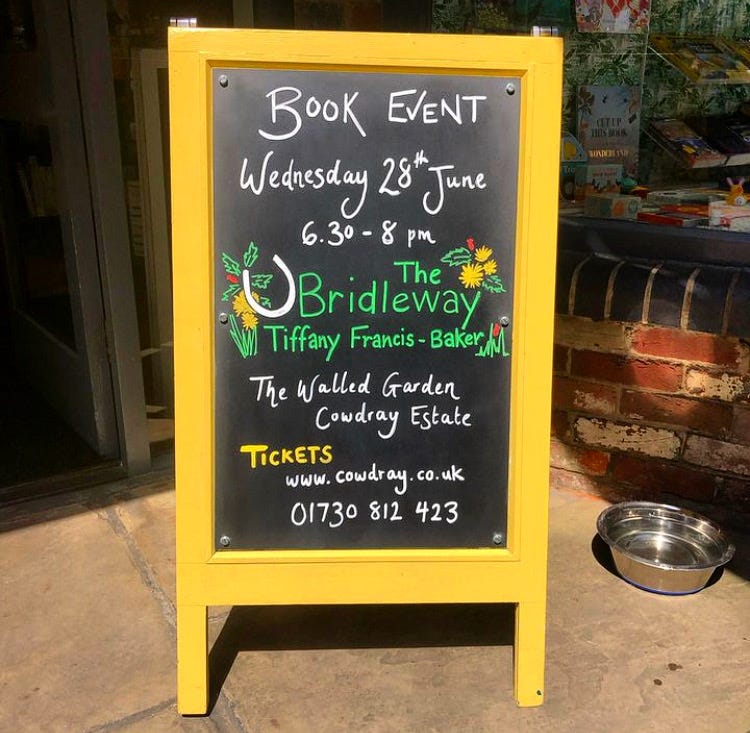 BOOK EVENT
Wednesday 28th June
6.30 - 8 pm
The
Bridleway
Tiffany Francis - Baker
The Walled Garden
Cowdray Estate
TICKETS
www.cowdray.co.uk
01730 812 423
CUT UP
THIS BOOK
WONDERLAND